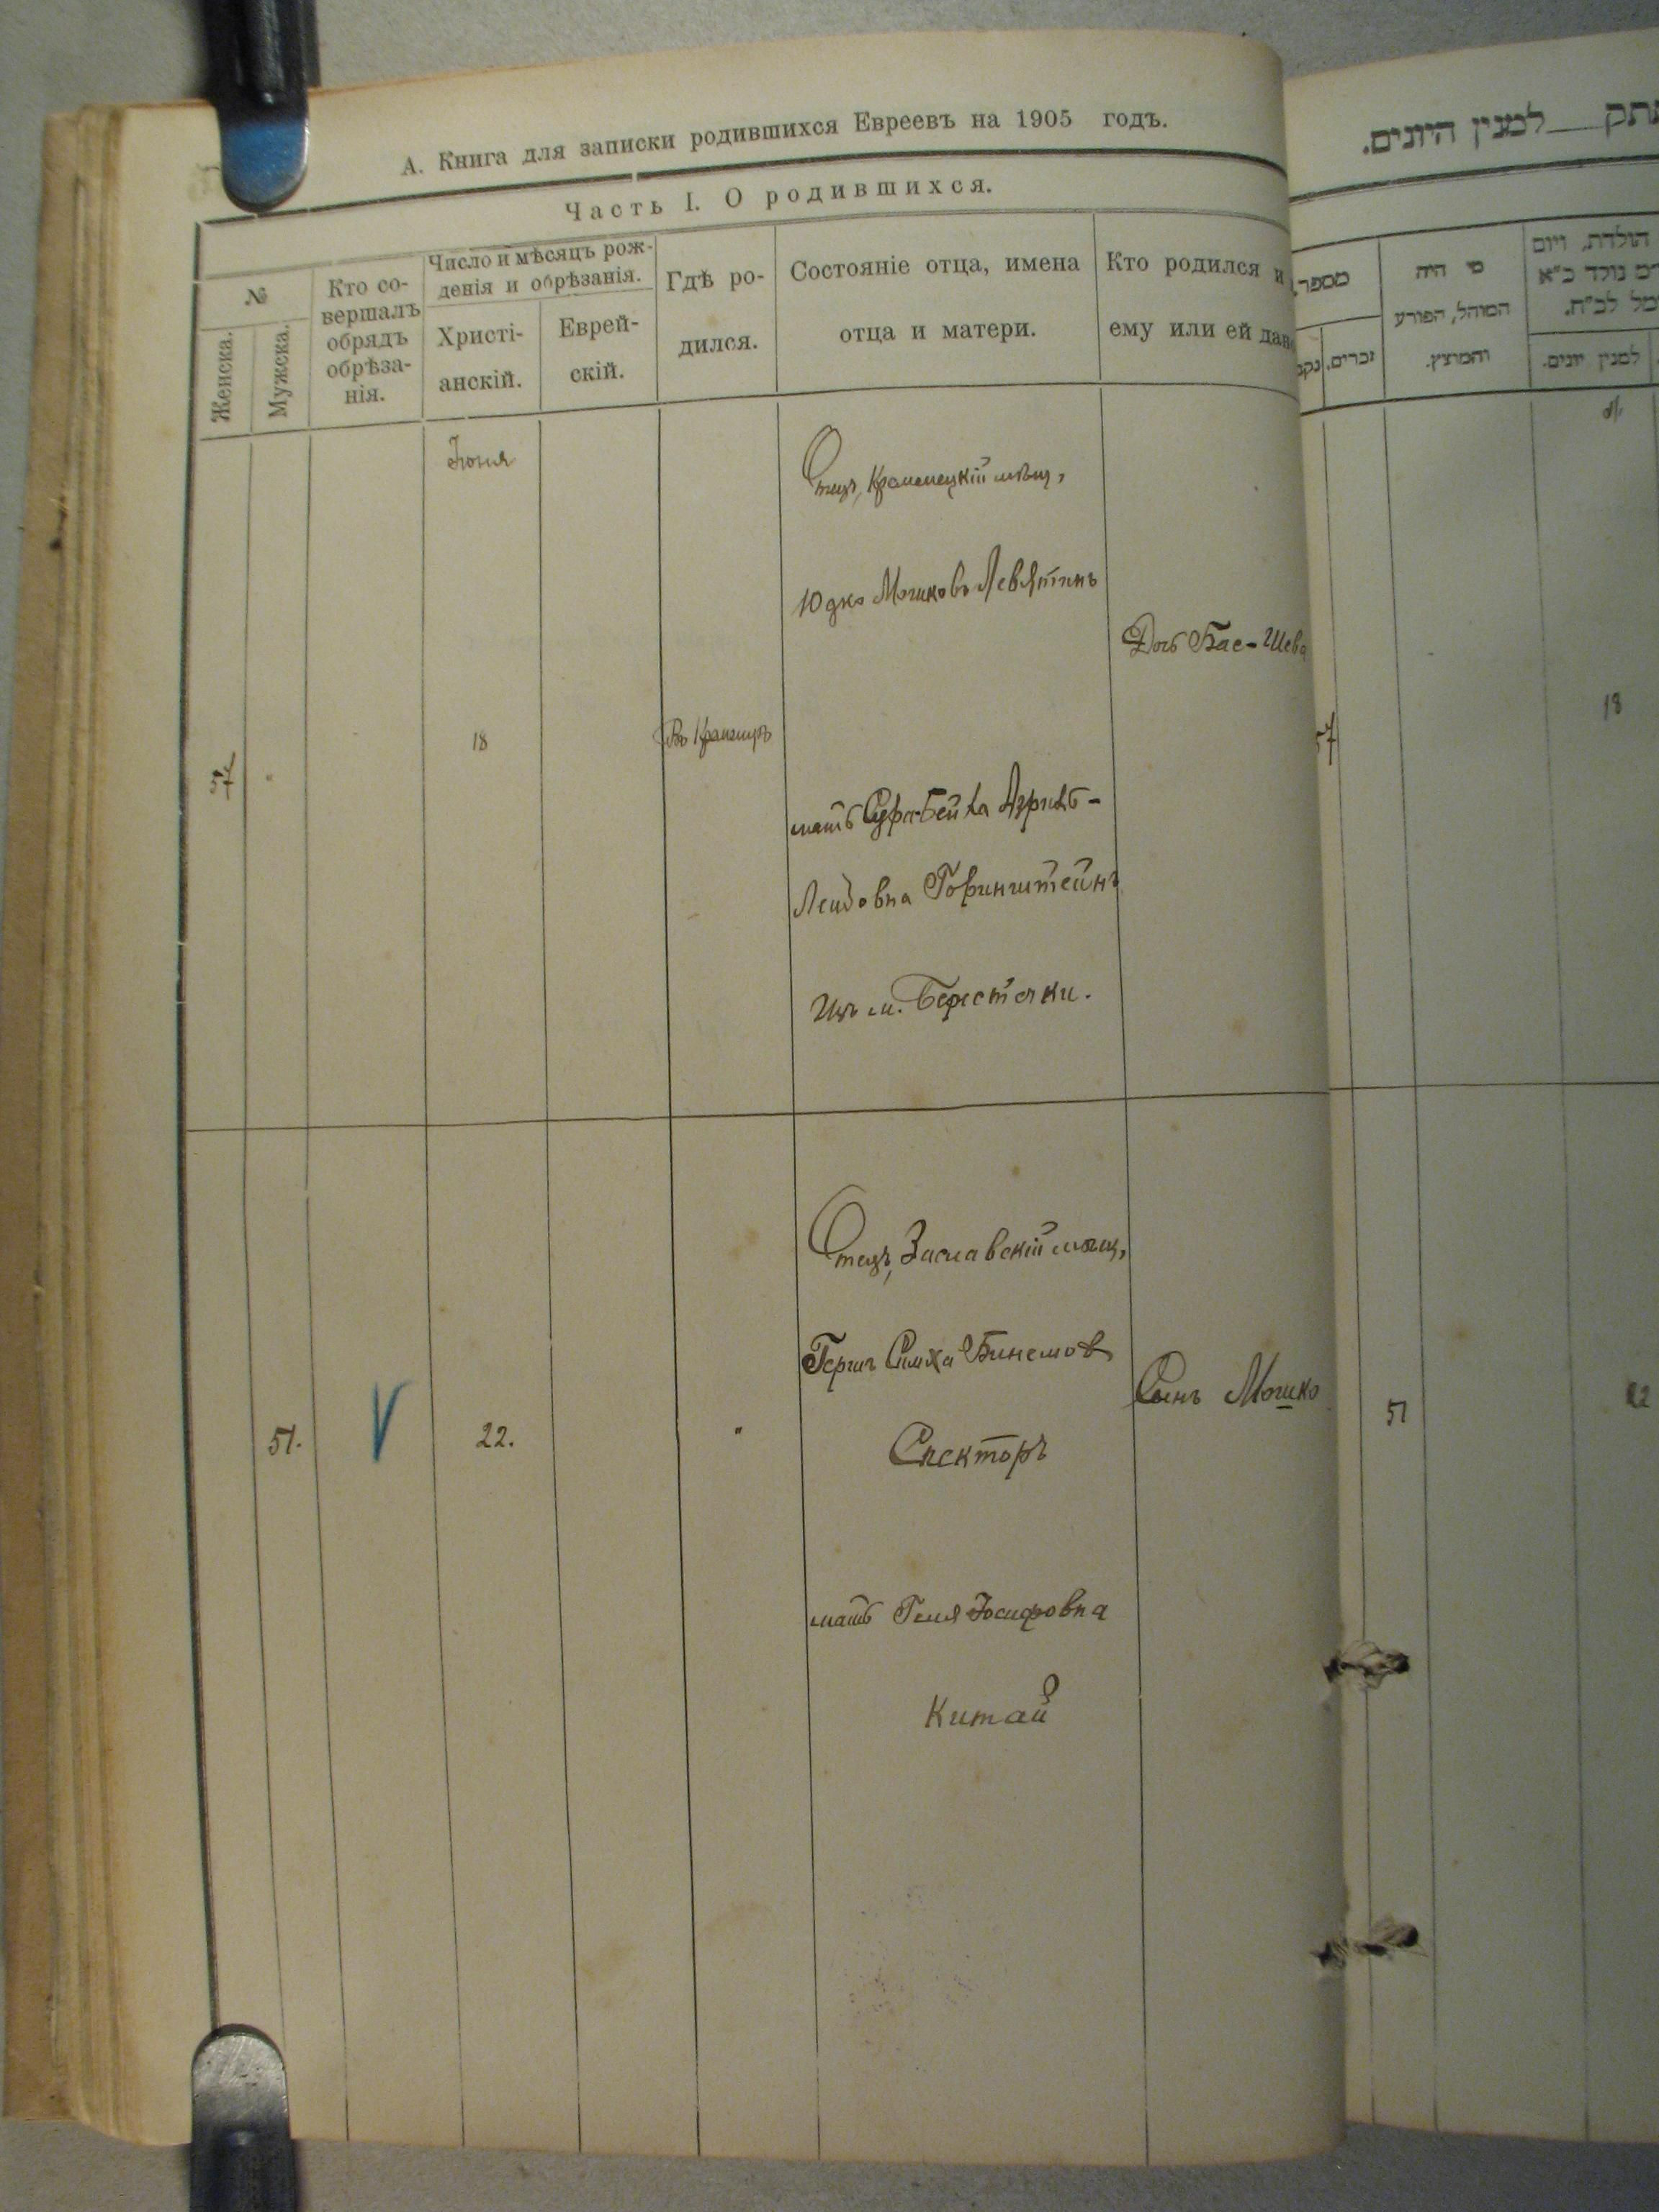 А. Книга для записки родившихся Евреевъ на 1905 годъ.
Часть I. О родившихся.
№
Женска.
Мужска.
Кто со-
вершалъ
обрядъ
обрѣза-
нія.
Число и мѣсяцъ рож-
денія и обрѣзанія.
Христі-
анскій.
Еврей-
скій.
Гдѣ ро-
дился.
Состояніе отца, имена
отца и матери.
Кто родился и
ему или ей дан
Іюня
57
18
Въ Кременцѣ
Отецъ, Кременецкій мѣщ,
Юдко Мошковъ Левятинъ
мать Сура-Бейла Азриль-
Лейбовна Горинштейнъ
Изъ м. Берестечки.
Дочь Бас-Шева
51.
V
22.
"
Отецъ, Заславскій мѣщ,
Герш Симха Бинемов
Спекторъ
мать Гиля Іосифовна
Китай
Сынъ Мошко
למנין היונים.
מספר
זכרים.
נקב
מי היה
המוהל, הפורע
והמוצץ.
הולדת, ויום
למנין יונים.
57
18
51
22